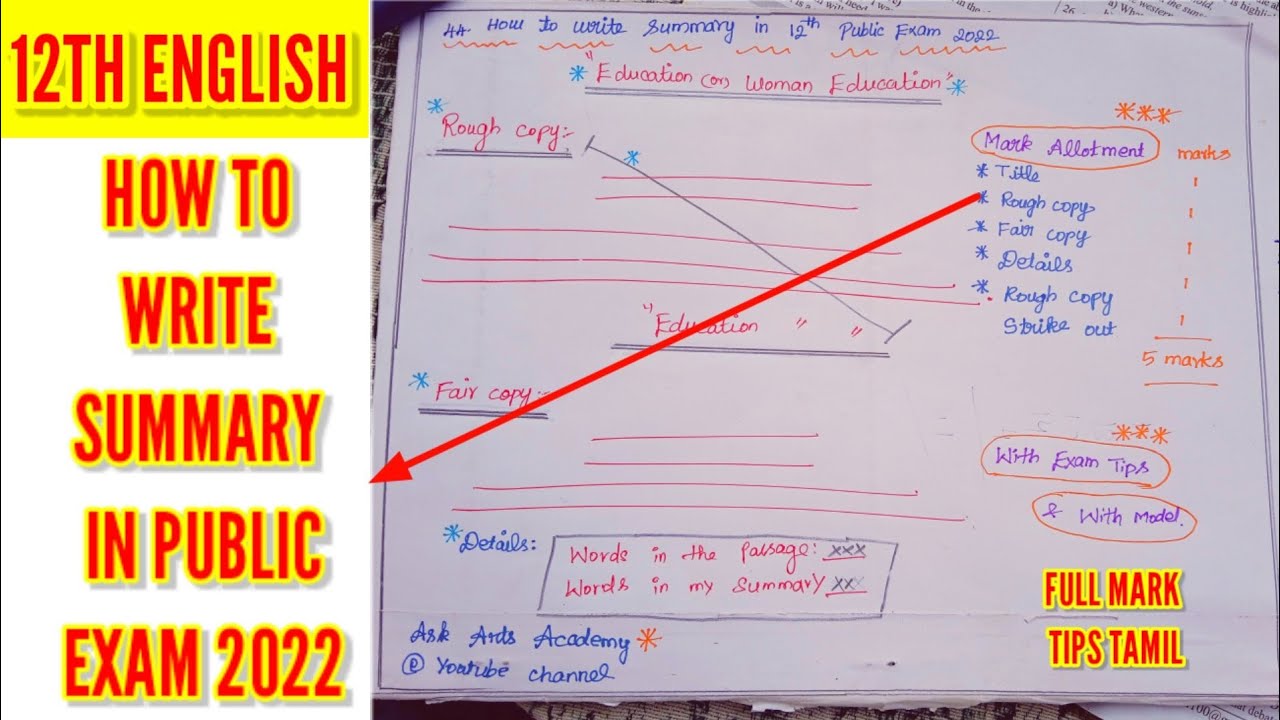 12TH ENGLISH
HOW TO
WRITE
SUMMARY
IN PUBLIC
EXAM 2022
44 How to write Summary in 12th Public Exam 2022
* "Education (or) Woman Education" *
* Rough copy:-
*
"Education " "
* Fair copy:-
* Details:
Words in the Passage: xxx
Words in my Summary xx
Ask Arts Academy *
@ Youtube channel
***
Mark Allotment marks
* Title 1
* Rough copy 1
* Fair copy 1
* Details 1
* Rough copy
Strike out 1
5 marks
***
With Exam Tips
& With Model.
FULL MARK
TIPS TAMIL